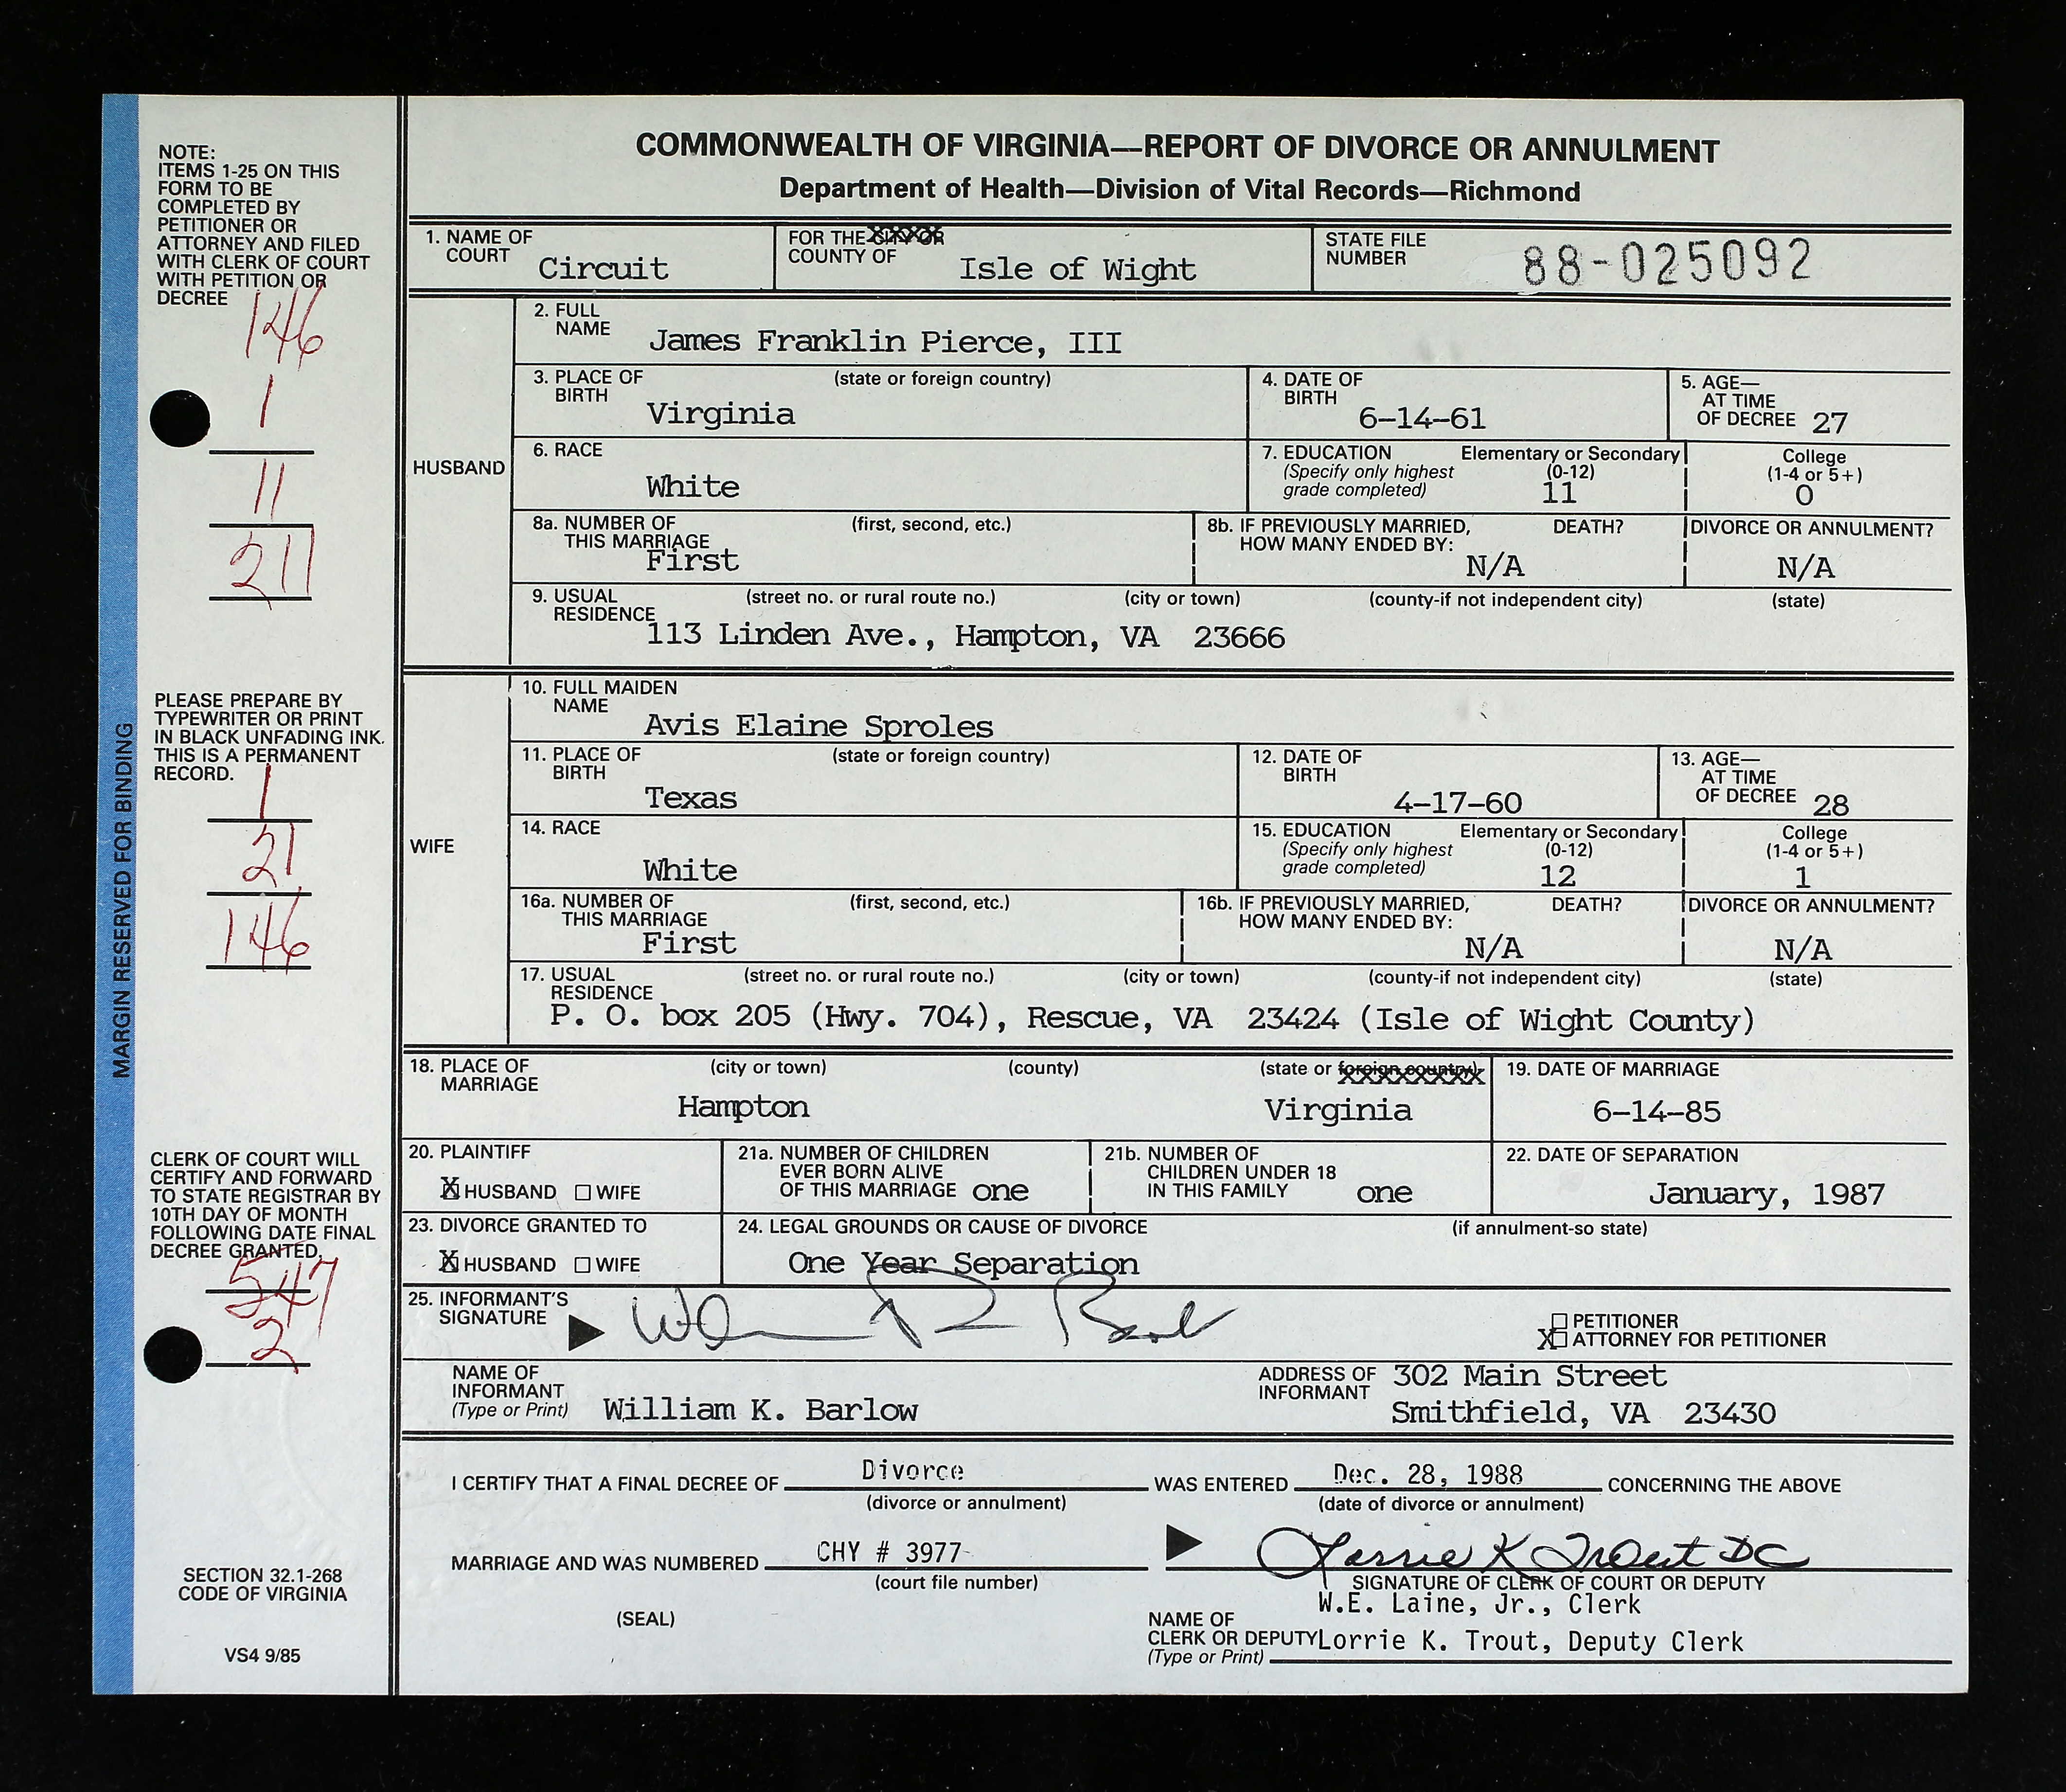 COMMONWEALTH OF VIRGINIA—REPORT OF DIVORCE OR ANNULMENT
Department of Health—Division of Vital Records—Richmond
NOTE:
ITEMS 1-25 ON THIS
FORM TO BE
COMPLETED BY
PETITIONER OR
ATTORNEY AND FILED
WITH CLERK OF COURT
WITH PETITION OR
DECREE
146
1
11
211
PLEASE PREPARE BY
TYPEWRITER OR PRINT
IN BLACK UNFADING INK.
THIS IS A PERMANENT
RECORD.
1
21
146
CLERK OF COURT WILL
CERTIFY AND FORWARD
TO STATE REGISTRAR BY
10TH DAY OF MONTH
FOLLOWING DATE FINAL
DECREE GRANTED.
547
2
SECTION 32.1-268
CODE OF VIRGINIA
VS4 9/85
MARGIN RESERVED FOR BINDING
1. NAME OF COURT Circuit
FOR THE CITY OR COUNTY OF Isle of Wight
STATE FILE NUMBER 88-025092
HUSBAND
2. FULL NAME James Franklin Pierce, III
3. PLACE OF BIRTH (state or foreign country) Virginia
4. DATE OF BIRTH 6-14-61
5. AGE— AT TIME OF DECREE 27
6. RACE White
7. EDUCATION (Specify only highest grade completed) Elementary or Secondary (0-12) 11 College (1-4 or 5+) 0
8a. NUMBER OF THIS MARRIAGE (first, second, etc.) First
8b. IF PREVIOUSLY MARRIED, HOW MANY ENDED BY: DEATH? N/A DIVORCE OR ANNULMENT? N/A
9. USUAL RESIDENCE (street no. or rural route no.) (city or town) (county-if not independent city) (state)
113 Linden Ave., Hampton, VA 23666
WIFE
10. FULL MAIDEN NAME Avis Elaine Sproles
11. PLACE OF BIRTH (state or foreign country) Texas
12. DATE OF BIRTH 4-17-60
13. AGE— AT TIME OF DECREE 28
14. RACE White
15. EDUCATION (Specify only highest grade completed) Elementary or Secondary (0-12) 12 College (1-4 or 5+) 1
16a. NUMBER OF THIS MARRIAGE (first, second, etc.) First
16b. IF PREVIOUSLY MARRIED, HOW MANY ENDED BY: DEATH? N/A DIVORCE OR ANNULMENT? N/A
17. USUAL RESIDENCE (street no. or rural route no.) (city or town) (county-if not independent city) (state)
P. O. box 205 (Hwy. 704), Rescue, VA 23424 (Isle of Wight County)
18. PLACE OF MARRIAGE (city or town) (county) (state or foreign country)
Hampton Virginia
19. DATE OF MARRIAGE 6-14-85
20. PLAINTIFF X HUSBAND WIFE
21a. NUMBER OF CHILDREN EVER BORN ALIVE OF THIS MARRIAGE one
21b. NUMBER OF CHILDREN UNDER 18 IN THIS FAMILY one
22. DATE OF SEPARATION January, 1987
23. DIVORCE GRANTED TO X HUSBAND WIFE
24. LEGAL GROUNDS OR CAUSE OF DIVORCE (if annulment-so state)
One Year Separation
25. INFORMANT'S SIGNATURE
PETITIONER
X ATTORNEY FOR PETITIONER
NAME OF INFORMANT (Type or Print) William K. Barlow
ADDRESS OF INFORMANT 302 Main Street
Smithfield, VA 23430
I CERTIFY THAT A FINAL DECREE OF Divorce WAS ENTERED Dec. 28, 1988 CONCERNING THE ABOVE
(divorce or annulment) (date of divorce or annulment)
MARRIAGE AND WAS NUMBERED CHY # 3977 Lorrie K Trout DC
(court file number) SIGNATURE OF CLERK OF COURT OR DEPUTY
W.E. Laine, Jr., Clerk
(SEAL)
NAME OF CLERK OR DEPUTY Lorrie K. Trout, Deputy Clerk
(Type or Print)